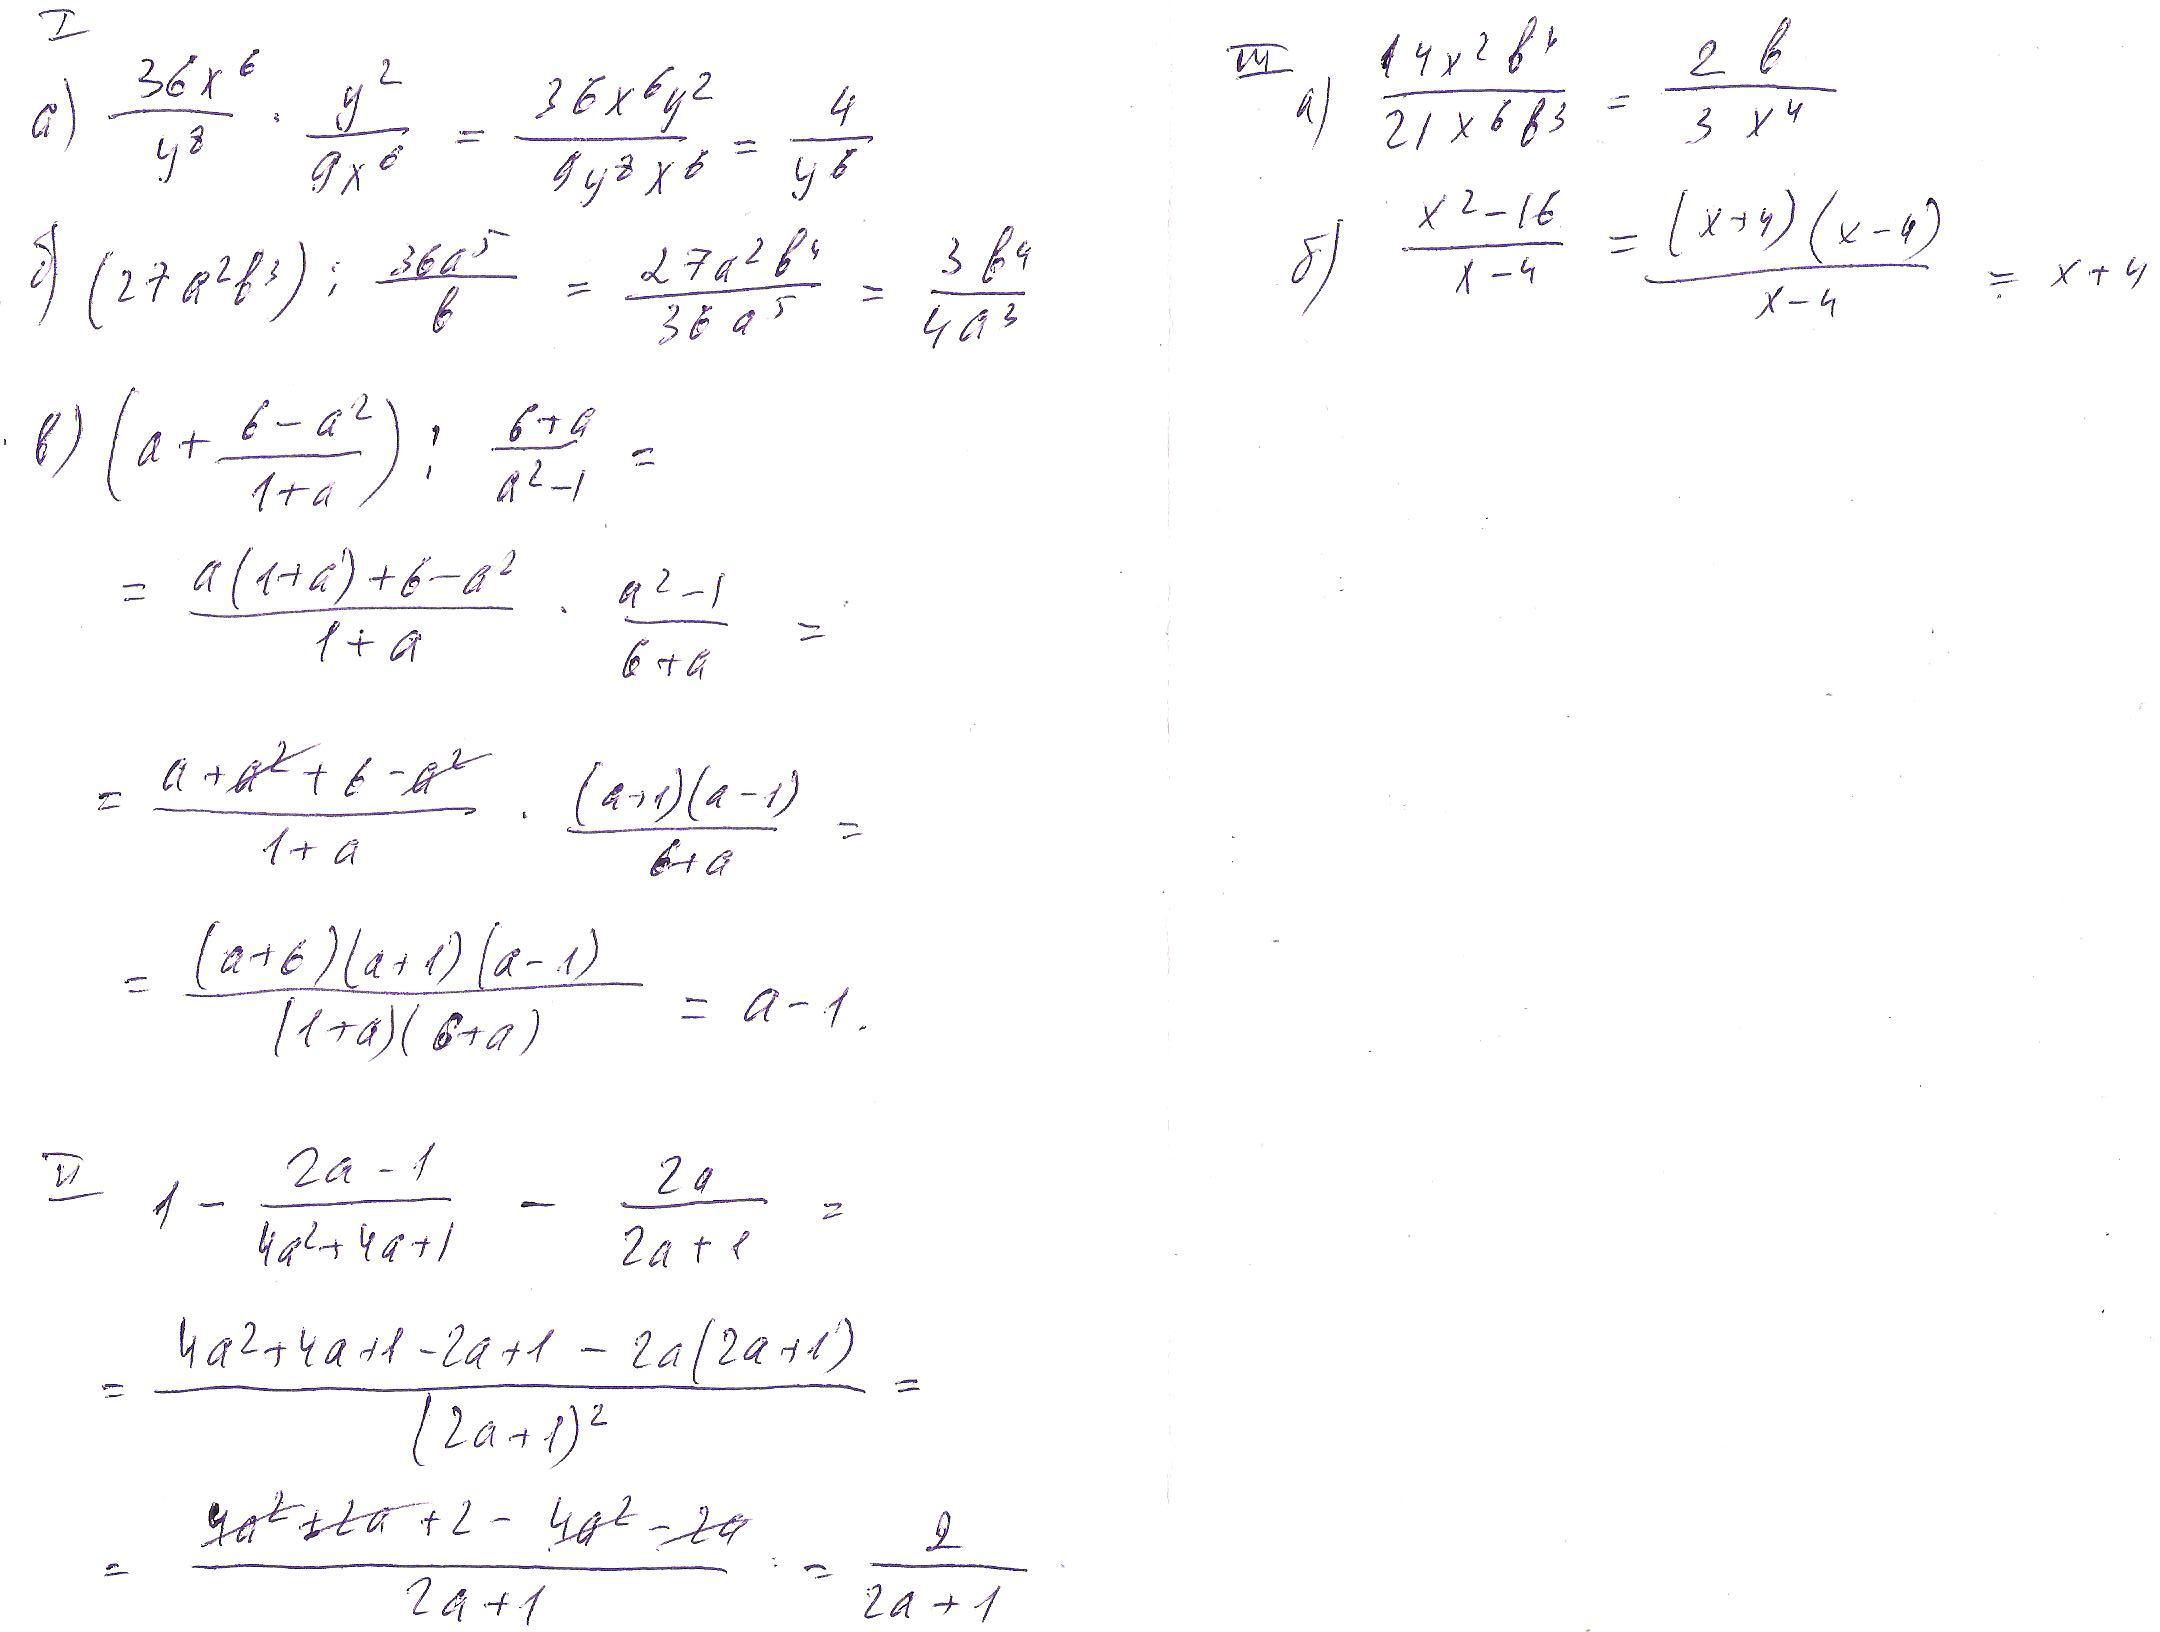 I
а) 36x⁶/y⁸ · y²/9x⁶ = 36x⁶y²/9y⁸x⁶ = 4/y⁶
б) (27a²b³) : 36a⁵/b = 27a²b⁴/36a⁵ = 3b⁴/4a³
в) (a + (6-a²)/(1+a)) : (6+a)/(a²-1) =
= (a(1+a)+6-a²)/(1+a) · (a²-1)/(6+a) =
= (a+a²+6-a²)/(1+a) · (a+1)(a-1)/(6+a) =
= (a+6)(a+1)(a-1)/(1+a)(6+a) = a-1.
II 1 - (2a-1)/(4a²+4a+1) - 2a/(2a+1) =
= (4a²+4a+1-2a+1-2a(2a+1))/(2a+1)² =
= (4a²+2a+2-4a²-2a)/(2a+1) = 2/(2a+1)
III а) 14x²b⁴/21x⁶b³ = 2b/3x⁴
б) (x²-16)/(x-4) = (x+4)(x-4)/(x-4) = x+4